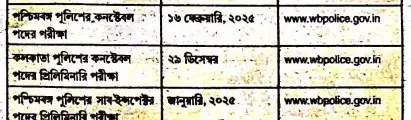 পশ্চিমবঙ্গ পুলিশের কনস্টেবল ১৬ ফেব্রুয়ারি, ২০২৫ www.wbpolice.gov.in
পদের পরীক্ষা
কলকাতা পুলিশের কনস্টেবল ২৯ ডিসেম্বর www.wbpolice.gov.in
পদের প্রিলিমিনারি পরীক্ষা
পশ্চিমবঙ্গ পুলিশের সাব-ইন্সপেক্টর জানুয়ারি, ২০২৫ www.wbpolice.gov.in
পদের প্রিলিমিনারি পরীক্ষা